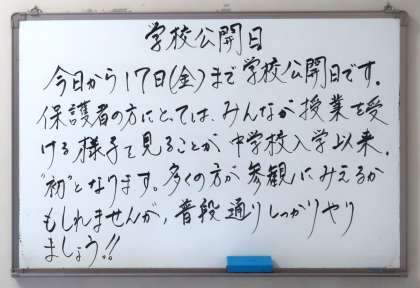 学校公開日
今日から17日(金)まで学校公開日です.
保護者の方にとっては、みんなが授業を受
ける様子を見ることが中学校入学以来.
"初"となります。多くの方が参観にみえるか
もしれませんが,普段通りしっかりやり
ましょう!!